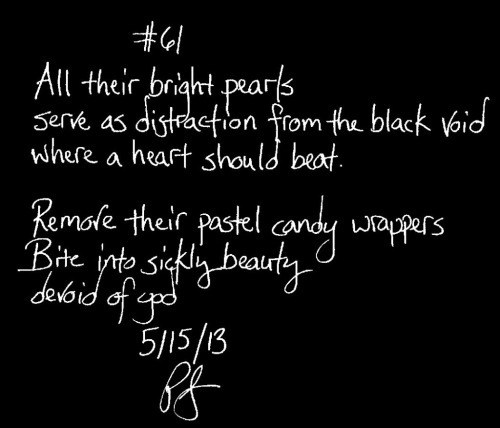 #61
All their bright pearls
serve as distraction from the black void
where a heart should beat.
Remove their pastel candy wrappers
Bite into sickly beauty
devoid of god
5/15/13